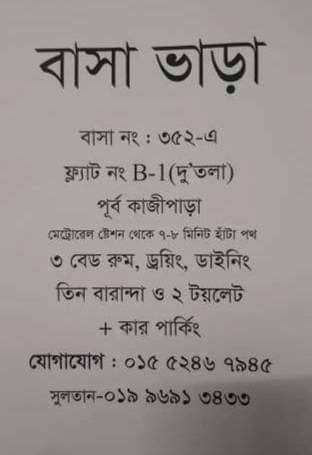 বাসা ভাড়া
বাসা নং : ৩৫২-এ
ফ্ল্যাট নং B-1(দু'তলা)
পূর্ব কাজীপাড়া
মেট্রোরেল ষ্টেশন থেকে ৭-৮ মিনিট হাঁটা পথ
৩ বেড রুম, ড্রয়িং, ডাইনিং
তিন বারান্দা ও ২ টয়লেট
+ কার পার্কিং
যোগাযোগ : ০১৫ ৫২৪৬ ৭৯৪৫
সুলতান-০১৯ ৯৬৯১ ৩৪৩৩